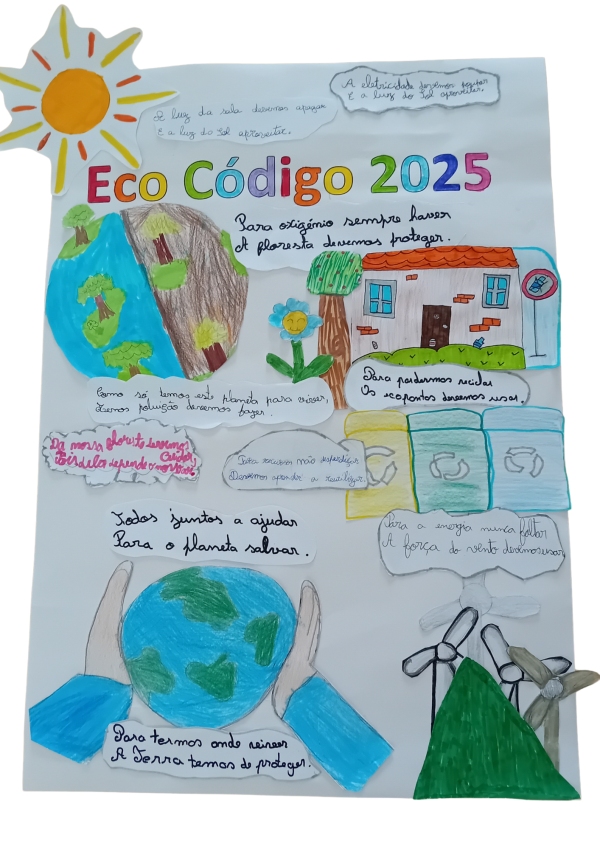 A eletricidade devemos poupar
E a luz do Sol aproveitar.
A luz da sala devemos apagar
E a luz do Sol aproveitar.
Eco Código 2025
Para oxigénio sempre haver
A floresta devemos proteger.
Como só temos este planeta para viver,
Menos poluição devemos fazer.
Para podermos reciclar
Os ecopontos devemos usar.
Da nossa floresta devemos
Cuidar
Pois dela depende o nosso
Para recursos não desperdiçar
Devemos aprender a reutilizar.
Todos juntos a ajudar
Para o planeta salvar.
Para a energia nunca faltar
A força do vento devemos usar
Para termos onde viver
A Terra temos de proteger.